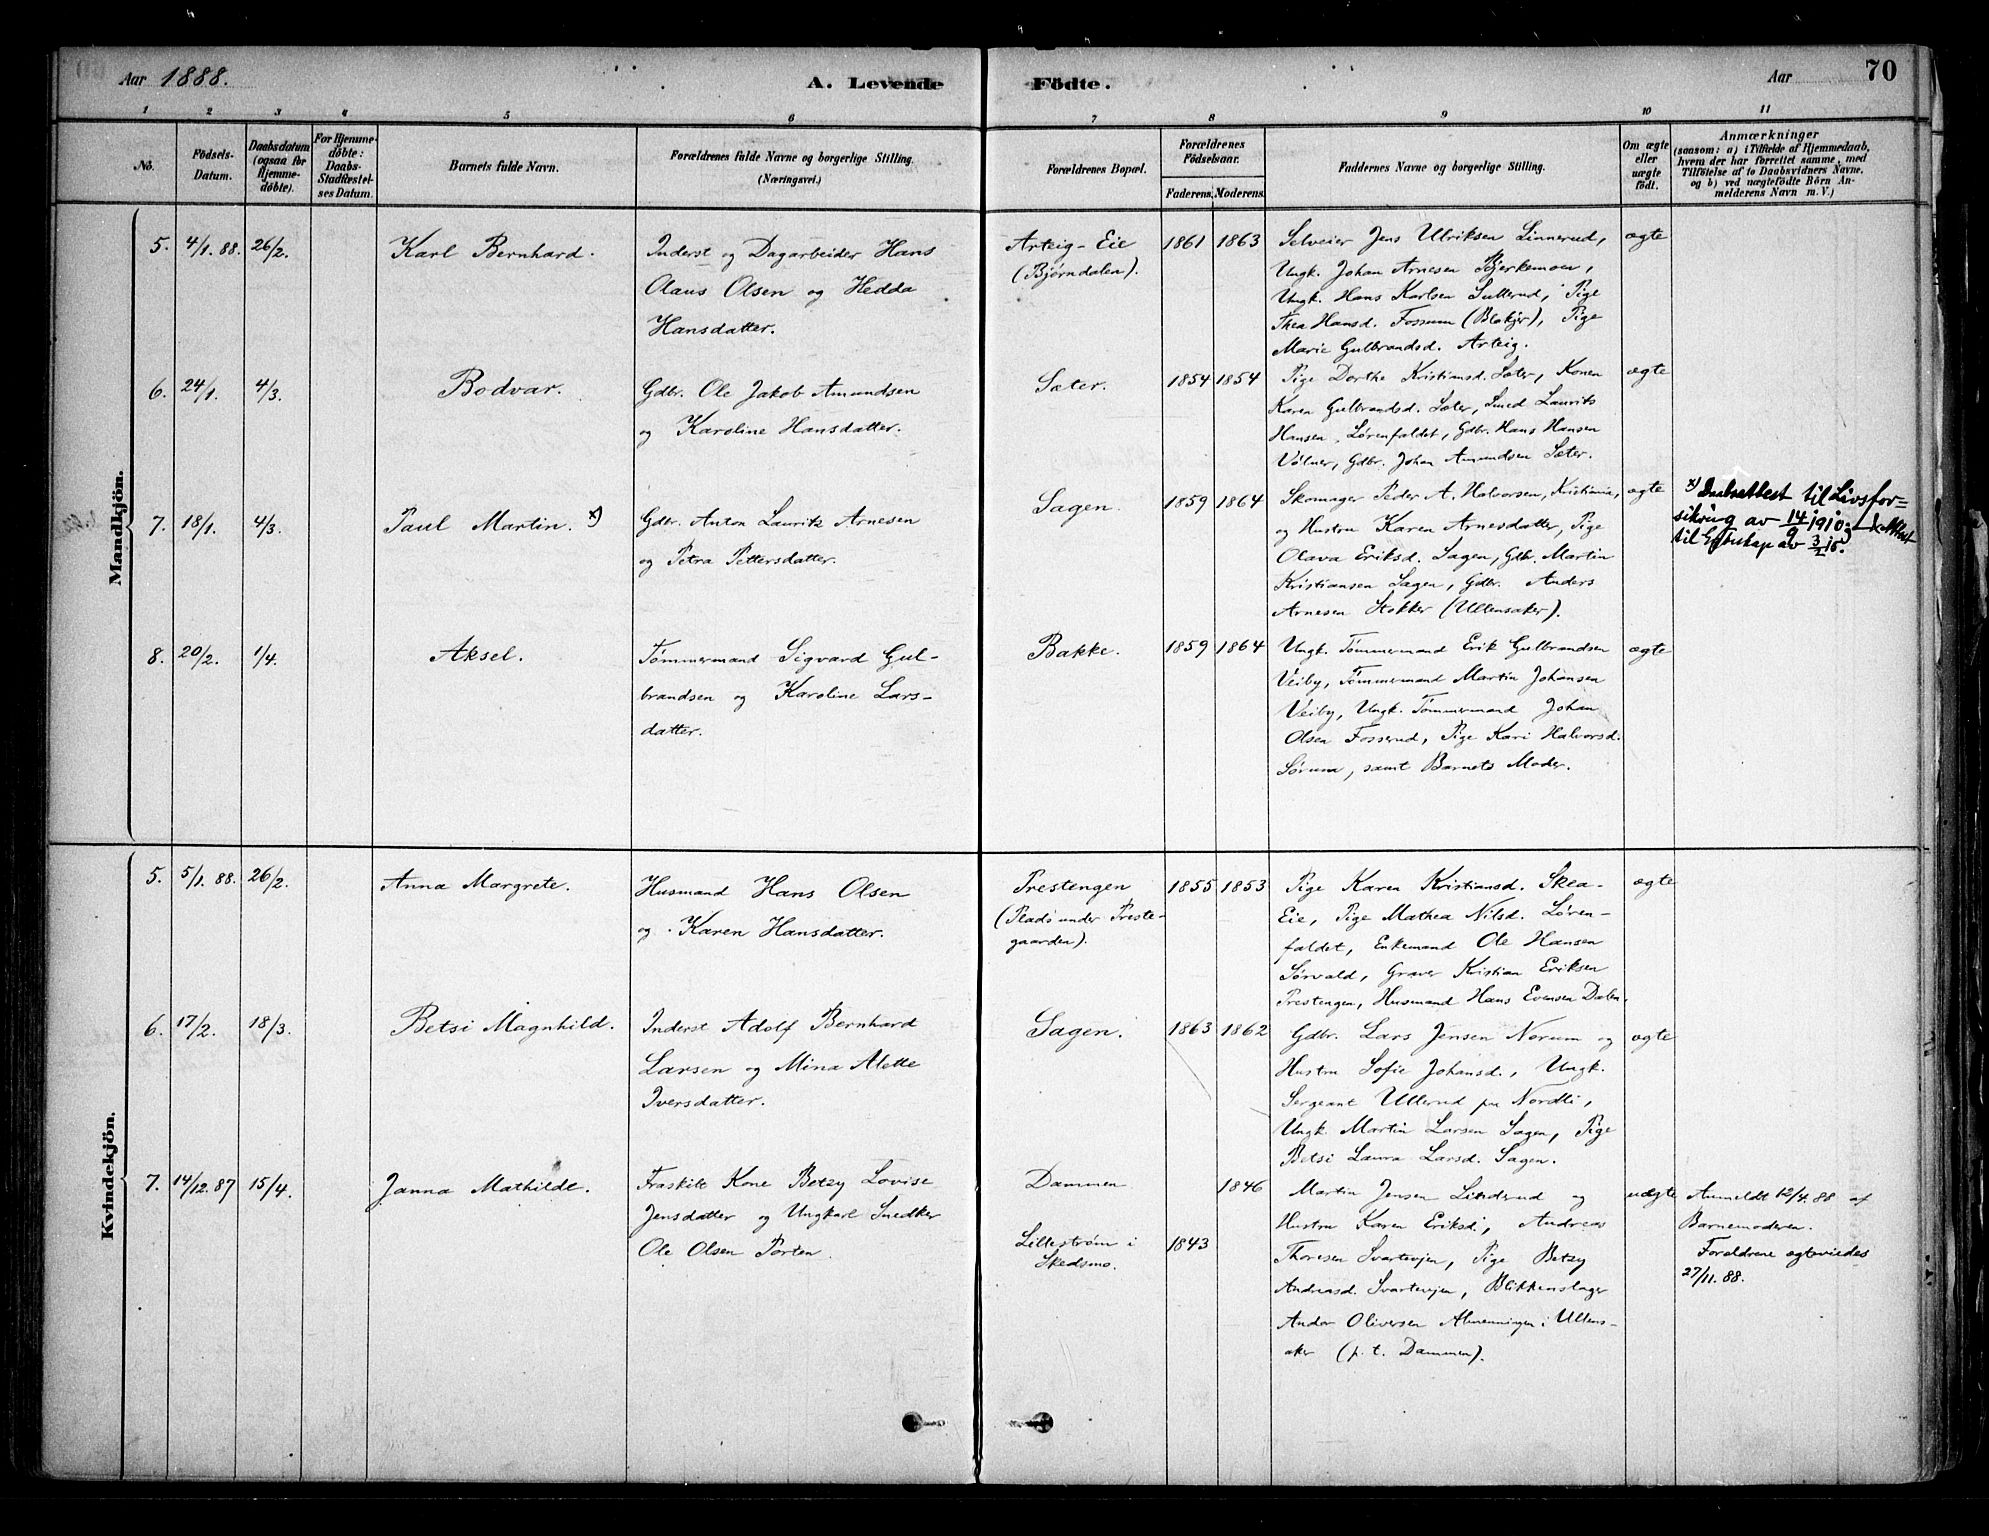 Aar 1888.
A. Levende Födte.
Aar
70
1 2 3 4 5 6 7 8 9 10 11
No.
Födsels-
Datum.
Daabsdatum
(ogsaa for
Hjemme-
döbte).
For Hjemme-
döbte:
Daabs-
Stadfæstel-
ses Datum.
Barnets fulde Navn.
Forældrenes fulde Navne og borgerlige Stilling.
(Næringsvei.)
Forældrenes Bopæl.
Forældrenes
Födselsaar.
Faderens. Moderens.
Faddernes Navne og borgerlige Stilling.
Om ægte
eller
uægte
födt.
Anmærkninger
(saasom: a) i Tilfælde af Hjemmedaab,
hvem der har forrettet samme, med
Tilföielse af to Daabsvidners Navne,
og b) ved uægtefödte Börn An-
melderens Navn m. V.)
Mandkjön.
5. 4/1. 88. 26/2.
Karl Bernhard.
Inderst og Dagarbeider Hans
Olaus Olsen og Hedda
Hansdatter.
Arteig-Eie
(Bjørndalen).
1861 1863
Selveier Jens Ulriksen Linnerud,
Ungk. Johan Arnesen Bjerkemoen,
Ungk. Hans Karlsen Sullerud, Pige
Thea Hansd. Fossum (Blakjer), Pige
Marie Gulbrandsd. Arteig.
ægte
6. 24/1. 4/3.
Bodvar.
Gdbr. Ole Jakob Amundsen
og Karoline Hansdatter.
Sæter.
1854 1854
Pige Dorthe Kristiansd. Sæter, Konen
Karen Gulbrandsd. Sæter, Smed Laurits
Hansen Lørenfaldet, Gdbr. Hans Hansen
Vølner, Gdbr. Johan Amundsen Sæter.
ægte
7. 18/1. 4/3.
Paul Martin. x)
Gdbr. Anton Lauritz Arnesen
og Petra Pettersdatter.
Sagen.
1859 1864
Skomager Peder A. Halvorsen, Kristiania,
og Hustru Karen Arnesdatter, Pige
Olava Eriksd. Sagen, Gdbr. Martin
Kristiansen Sagen, Gdbr. Anders
Arnesen Stokker (Ullensaker).
ægte
x) Daabsattest til Livsfor-
sikring av 14/9 1910; Attest
til Egteskap av 3/1 15.
8. 20/2. 1/4.
Aksel.
Tømmermand Sigvard Gul-
brandsen og Karoline Lars-
datter.
Bakke.
1859 1864
Ungk. Tømmermand Erik Gulbrandsen
Veiby, Tømmermand Martin Johansen
Veiby, Ungk. Tømmermand Johan
Olsen Fosserud, Pige Kari Halvorsd.
Sørum, samt Barnets Moder.
ægte
Kvindekjön.
5. 5/1. 88. 26/2.
Anna Margrete.
Husmand Hans Olsen
og Karen Hansdatter.
Prestengen
(Plads under Preste-
gaarden).
1855 1853
Pige Karen Kristiansd. Skea-
Eie, Pige Mathea Nilsd. Løren-
faldet, Enkemand Ole Hansen
Sørvald, Graver Kristian Eriksen
Prestengen, Husmand Hans Evensen Dalen.
ægte
6. 17/2. 18/3.
Betsi Magnhild.
Inderst Adolf Bernhard
Larsen og Mina Alette
Iversdatter.
Sagen.
1863 1862
Gdbr. Lars Jensen Norum og
Hustru Sofie Johansd., Ungk.
Sergeant Ullerud paa Nordli,
Ungk. Martin Larsen Sagen, Pige
Betsi Laura Larsd. Sagen.
ægte
7. 14/12. 87 15/4.
Janna Mathilde.
Fraskilt Kone Betzy Lovise
Jensdatter og Ungkarl Snedker
Ole Olsen Porten.
Dammen
Lillestrøm i
Skedsmo.
1846
1843
Martin Jensen Linderud og
Hustru Karen Eriksd., Andreas
Thoresen Svartevjen, Pige Betzy
Andreasd. Svartevjen, Blikkenslager
Andor Oliversen Almenningen i Ullens-
aker (p. t. Dammen).
uægte
Anmeldt 12/4. 88 af
Barnemoderen.
Forældrene ægteviedes
27/11. 88.